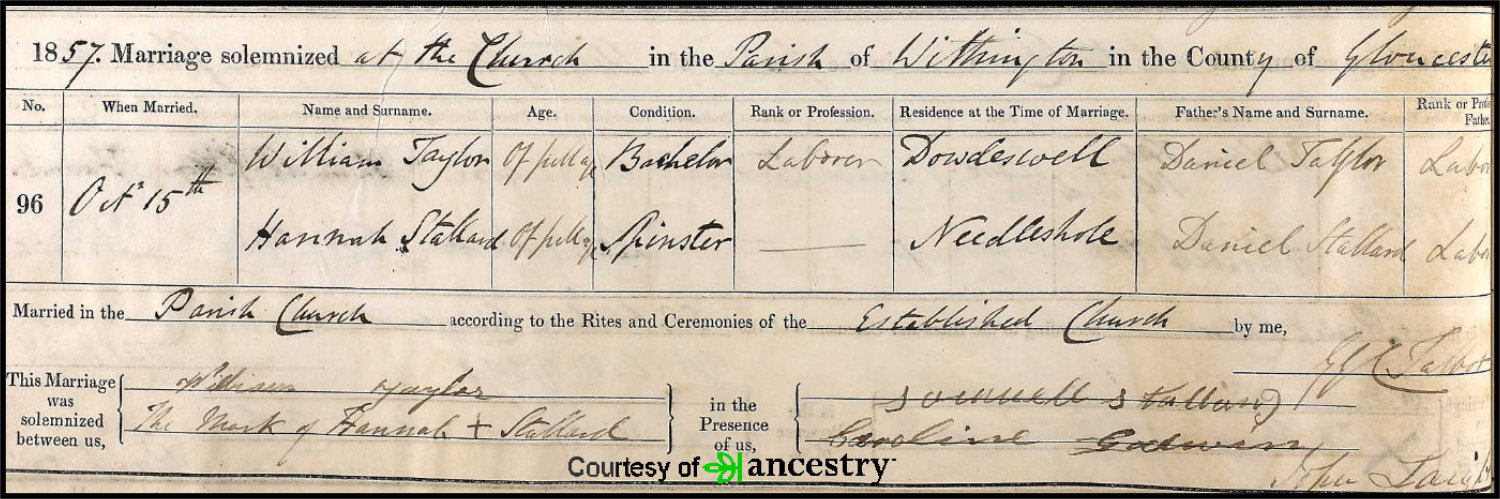 1857. Marriage solemnized at the Church in the Parish of Withington in the County of Glouceste
No. When Married. Name and Surname. Age. Condition. Rank or Profession. Residence at the Time of Marriage. Father's Name and Surname. Rank or Profe
Father
William Taylor Of full age Bachelor Laborer Dowdeswell Daniel Taylor Labo
96 Octr 15th
Hannah Stallard Of full age Spinster Needleshole Daniel Stallard Labo
Married in the Parish Church according to the Rites and Ceremonies of the Established Church by me,
Talbot
This Marriage was solemnized between us,
William Taylor
The Mark of Hannah + Stallard
in the Presence of us,
Stallard
Caroline Godwin
John
Courtesy of ancestry